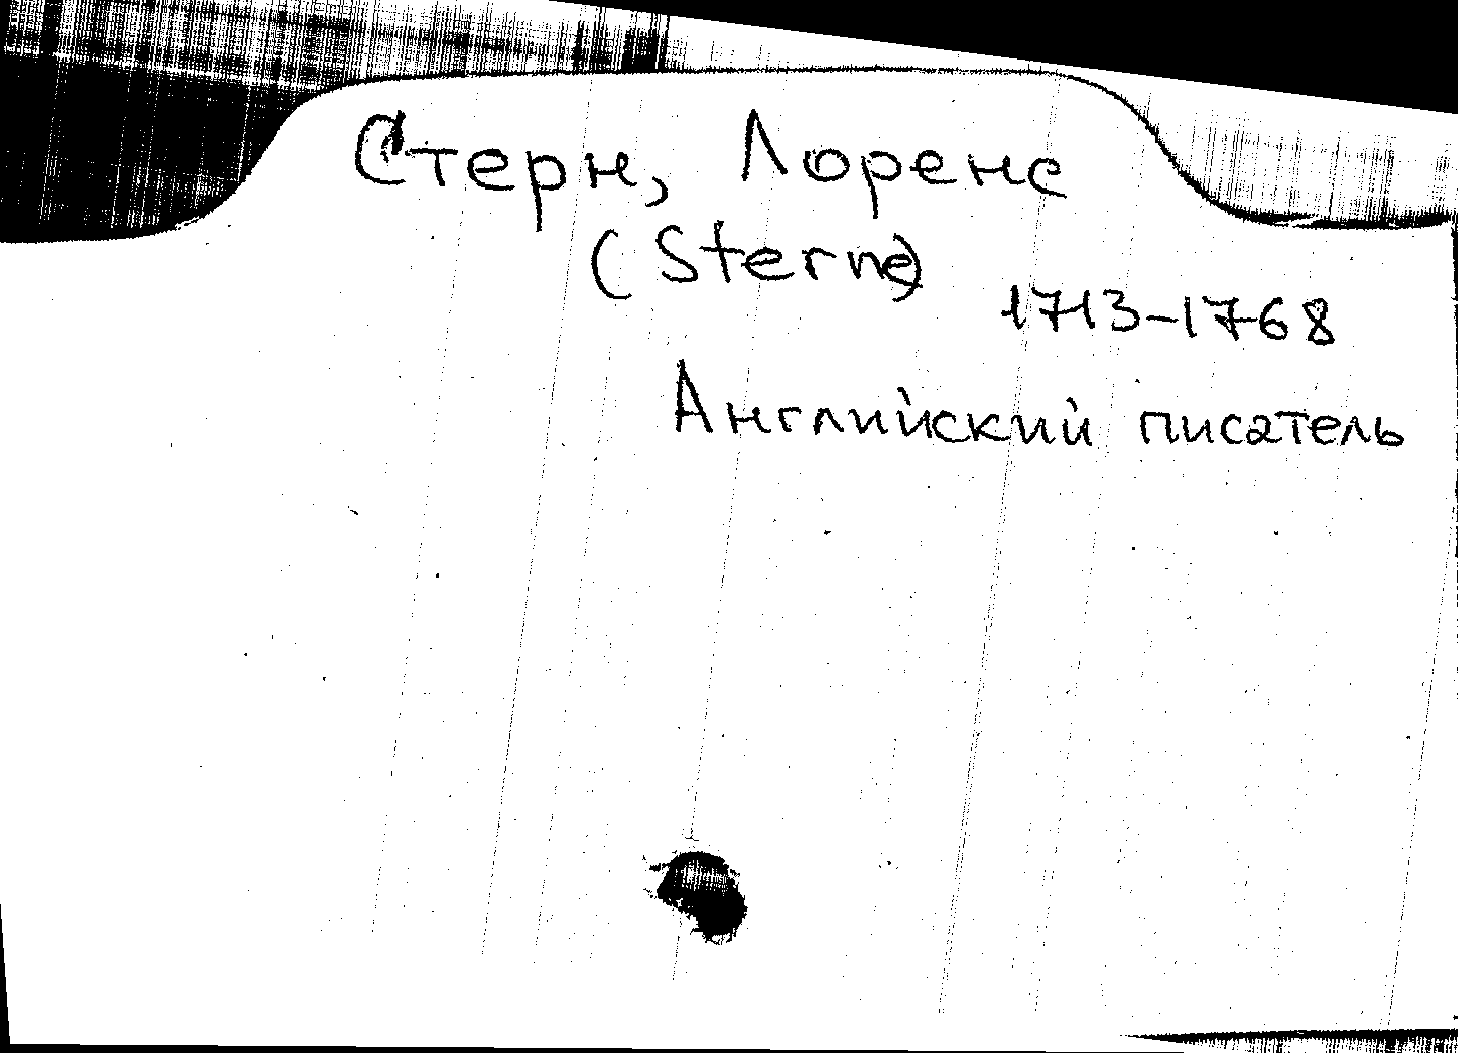 Стерн, Лоренс
(Sterne)
1713-1768
Английский писатель